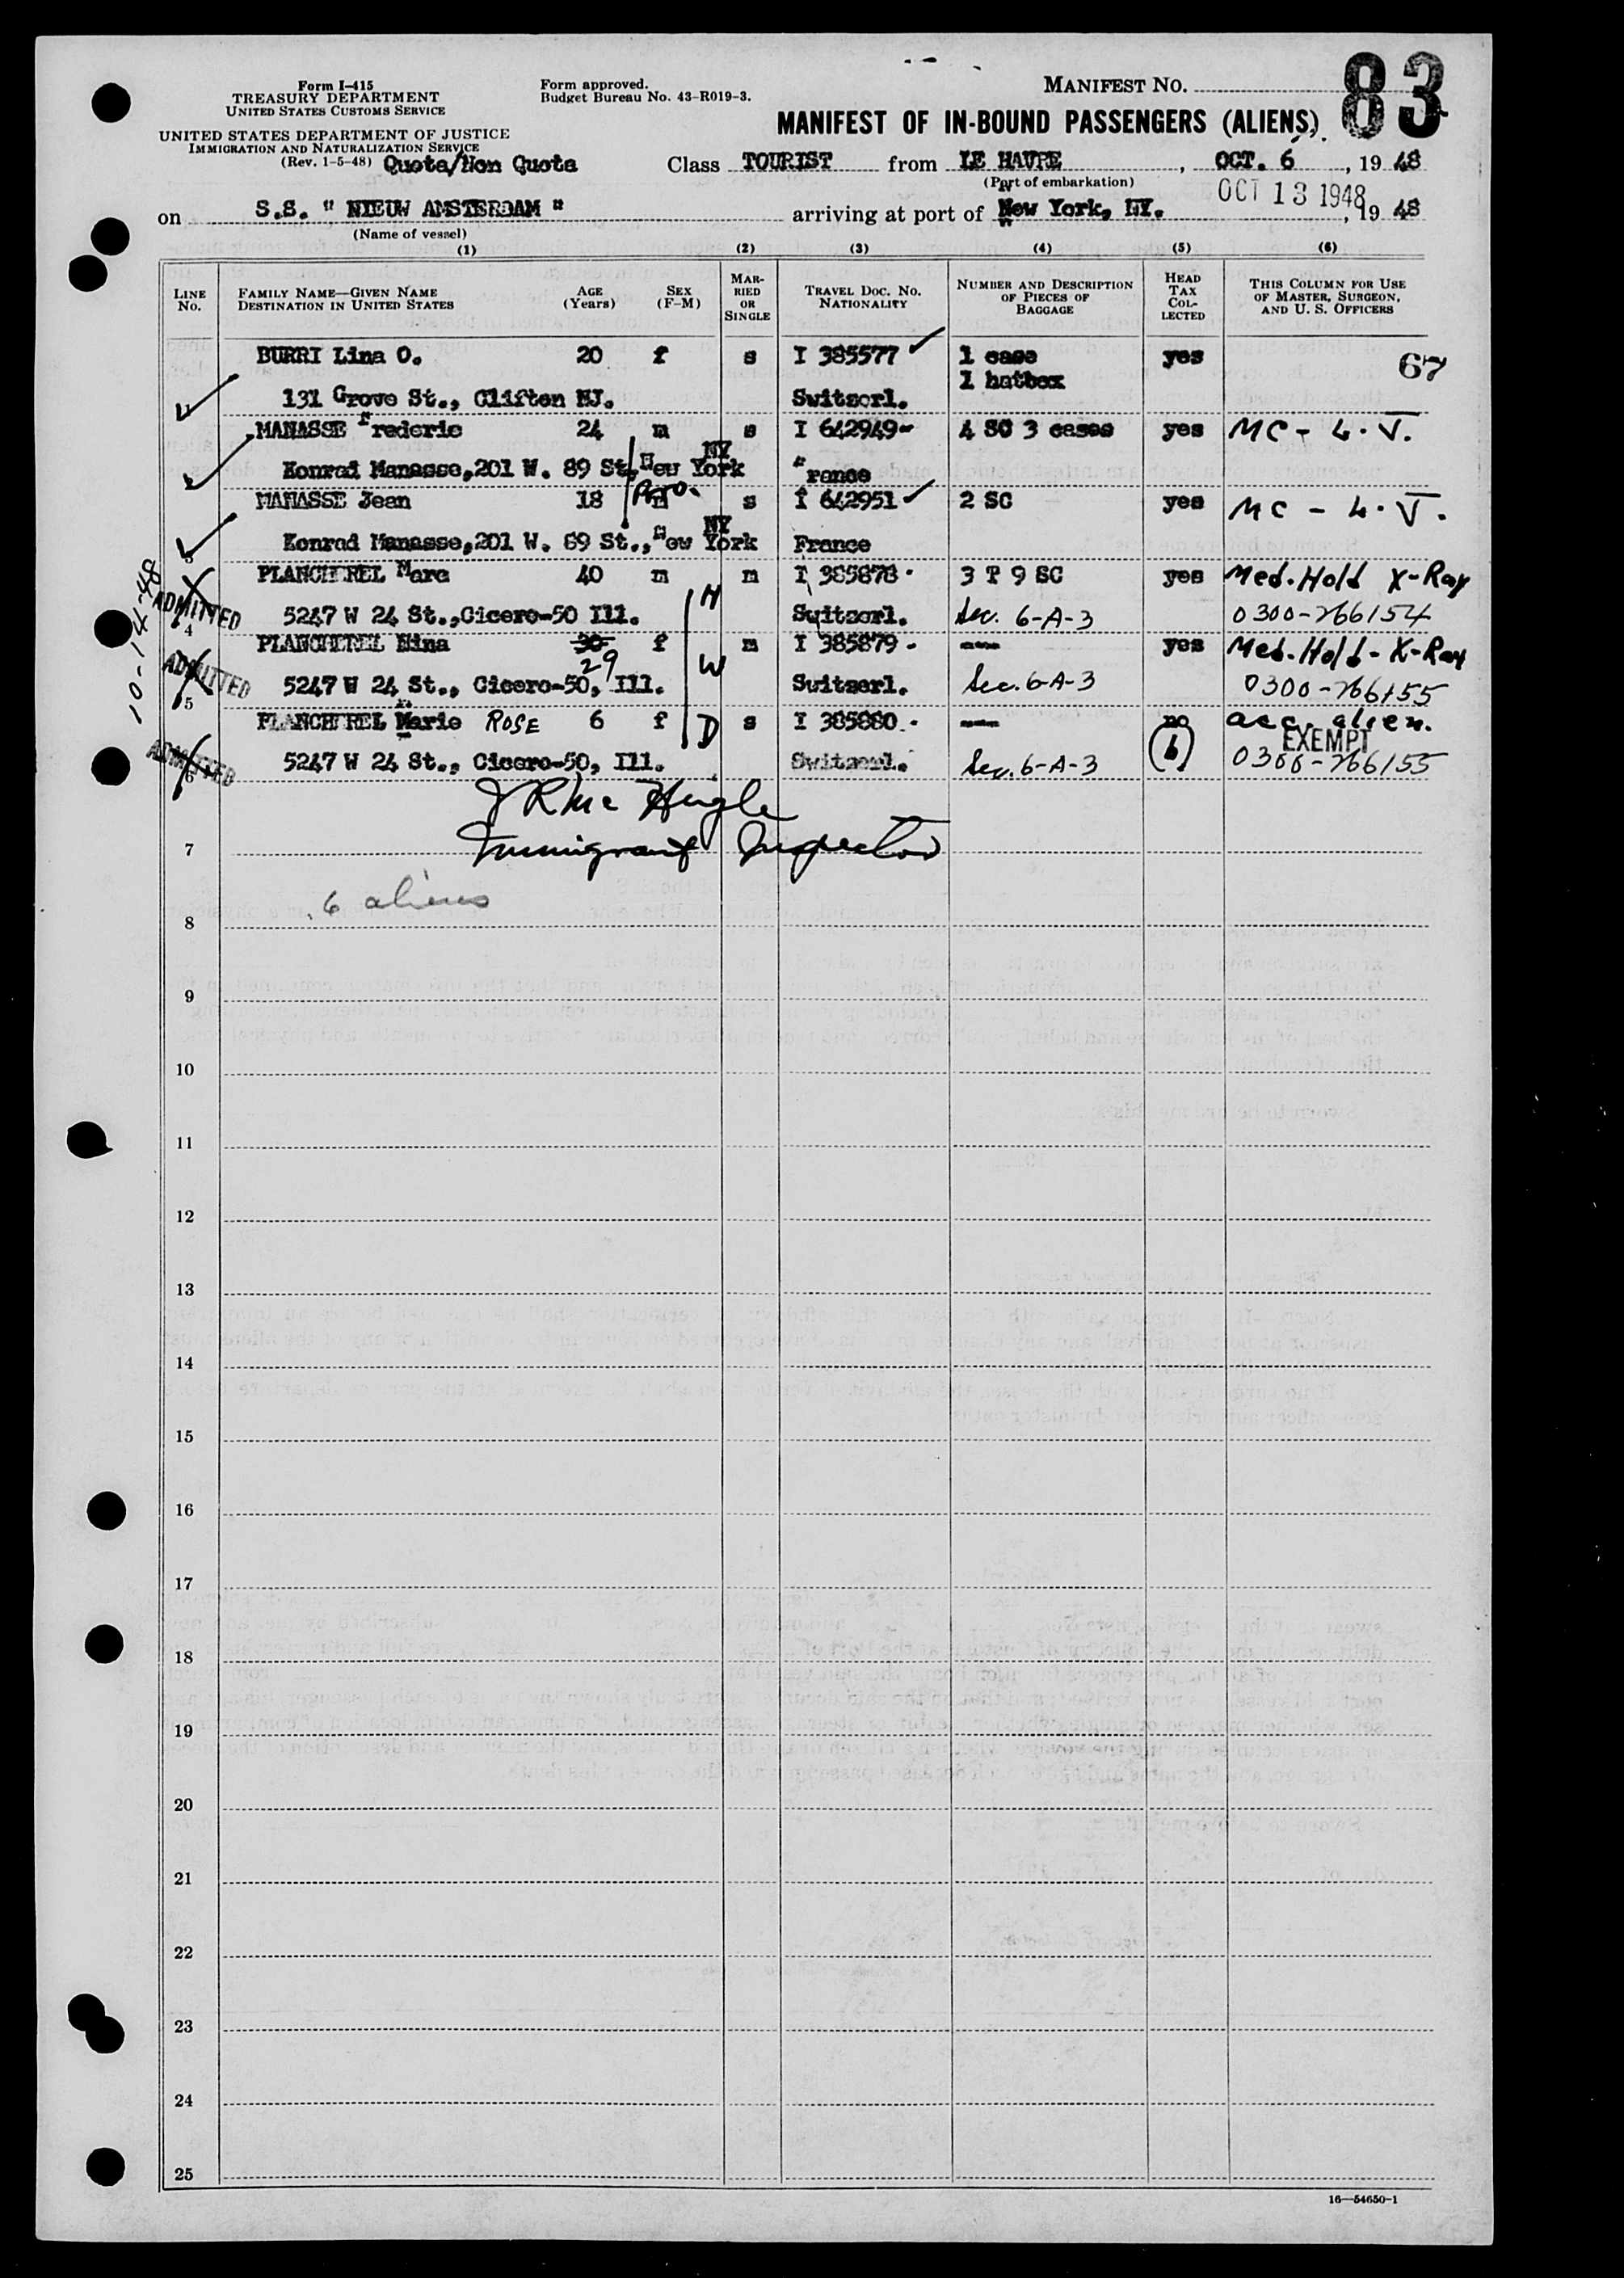 Form I-415
TREASURY DEPARTMENT
UNITED STATES CUSTOMS SERVICE
UNITED STATES DEPARTMENT OF JUSTICE
IMMIGRATION AND NATURALIZATION SERVICE
(Rev. 1-5-48) Quota/Non Quota
Form approved.
Budget Bureau No. 43-R019-3.
MANIFEST NO. 83
MANIFEST OF IN-BOUND PASSENGERS (ALIENS)
Class TOURIST from LE HAVRE, OCT. 6, 19 48
(Port of embarkation)
on S.S. " NIEUW AMSTERDAM " arriving at port of New York, NY. OCT 13 1948, 19 48
(Name of vessel)
(1) (2) (3) (4) (5) (6)
LINE NO. FAMILY NAME—GIVEN NAME DESTINATION IN UNITED STATES AGE (Years) SEX (F-M) MARRIED OR SINGLE TRAVEL DOC. NO. NATIONALITY NUMBER AND DESCRIPTION OF PIECES OF BAGGAGE HEAD TAX COLLECTED THIS COLUMN FOR USE OF MASTER, SURGEON, AND U. S. OFFICERS
BURRI Lina O. 20 f s I 385577 1 case yes 67
1 hatbox
131 Grove St., Clifton NJ. Switzerl.
MANASSE Frederic 24 m s I 642949 4 SC 3 cases yes MC - L. V.
Konrad Manasse, 201 W. 89 St, New York NY France
MANASSE Jean 18 Bro. s I 642951 2 SC yes MC - L. V.
Konrad Manasse, 201 W. 89 St., New York NY France
3
PLANCHEREL Marc 40 m m I 385878 3 T 9 SC yes Med. Hold X-Ray
10-14-48
ADMITTED 4 5247 W 24 St., Cicero-50 Ill. H Switzerl. Sec. 6-A-3 0300-266154
PLANCHEREL Nina 30 29 f m I 385879 --- yes Med. Hold - X-Ray
ADMITTED 5 5247 W 24 St., Cicero-50, Ill. W Switzerl. Sec. 6-A-3 0300-266155
PLANCHEREL Marie ROSE 6 f D s I 385880 --- no acc. alien.
EXEMPT
ADMITTED 6 5247 W 24 St., Cicero-50, Ill. Switzerl. Sec. 6-A-3 (b) 0300-266155
Immigrant Inspector
7
6 aliens
8
9
10
11
12
13
14
15
16
17
18
19
20
21
22
23
24
25
16—54650-1